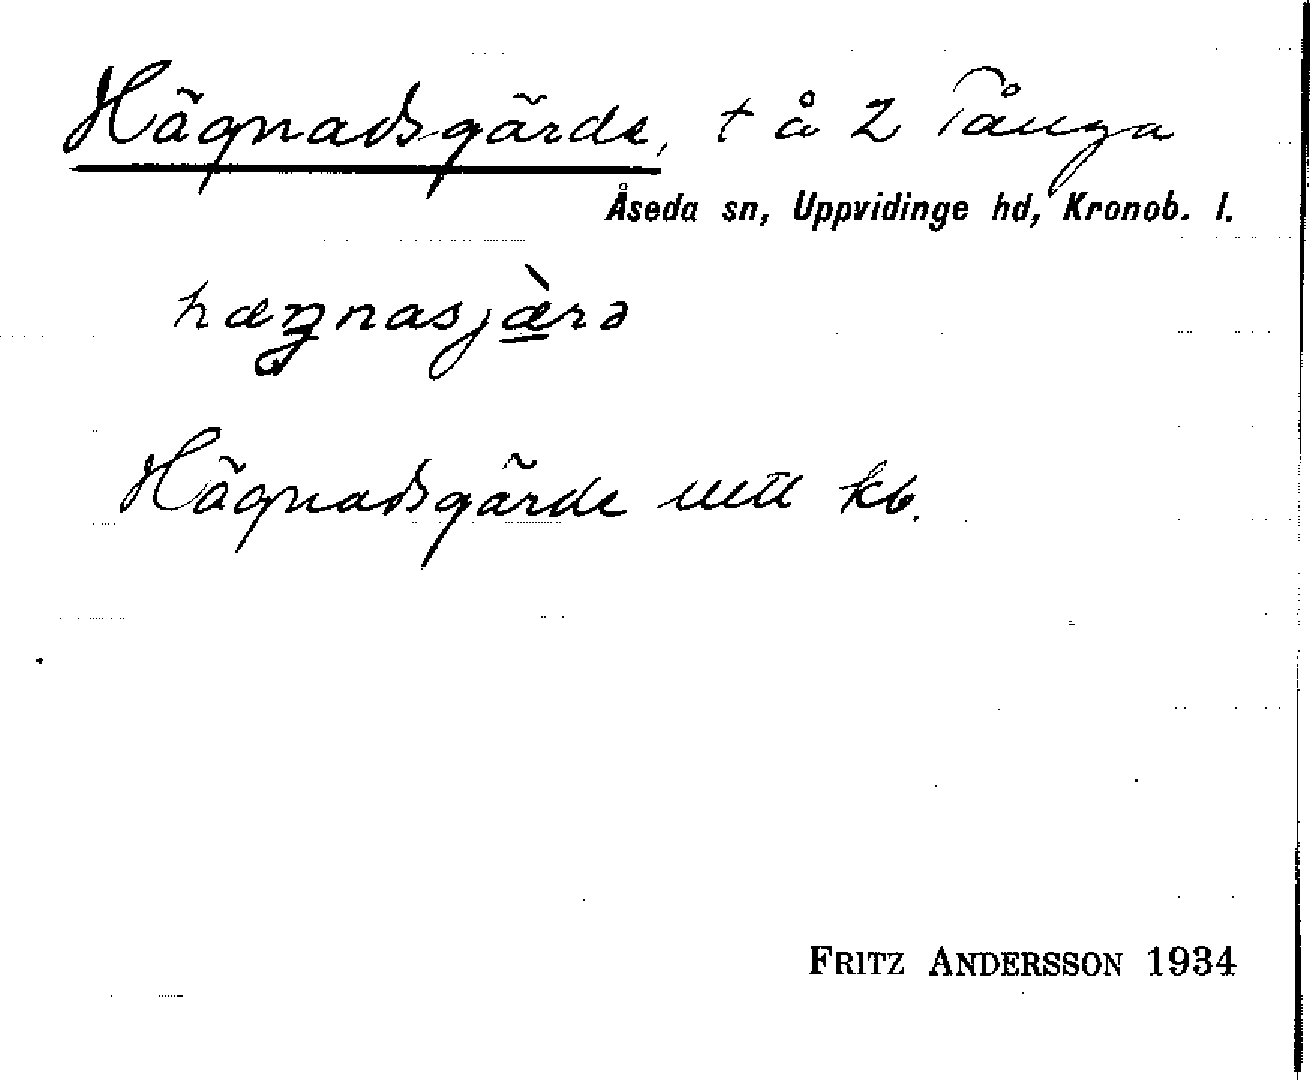 Hägnadsgärde, t å 2 Tånga
Åseda sn, Uppvidinge hd, Kronob. l.
hæŋnasjæ̀rə
Hägnadsgärde utt kb.
FRITZ ANDERSSON 1934